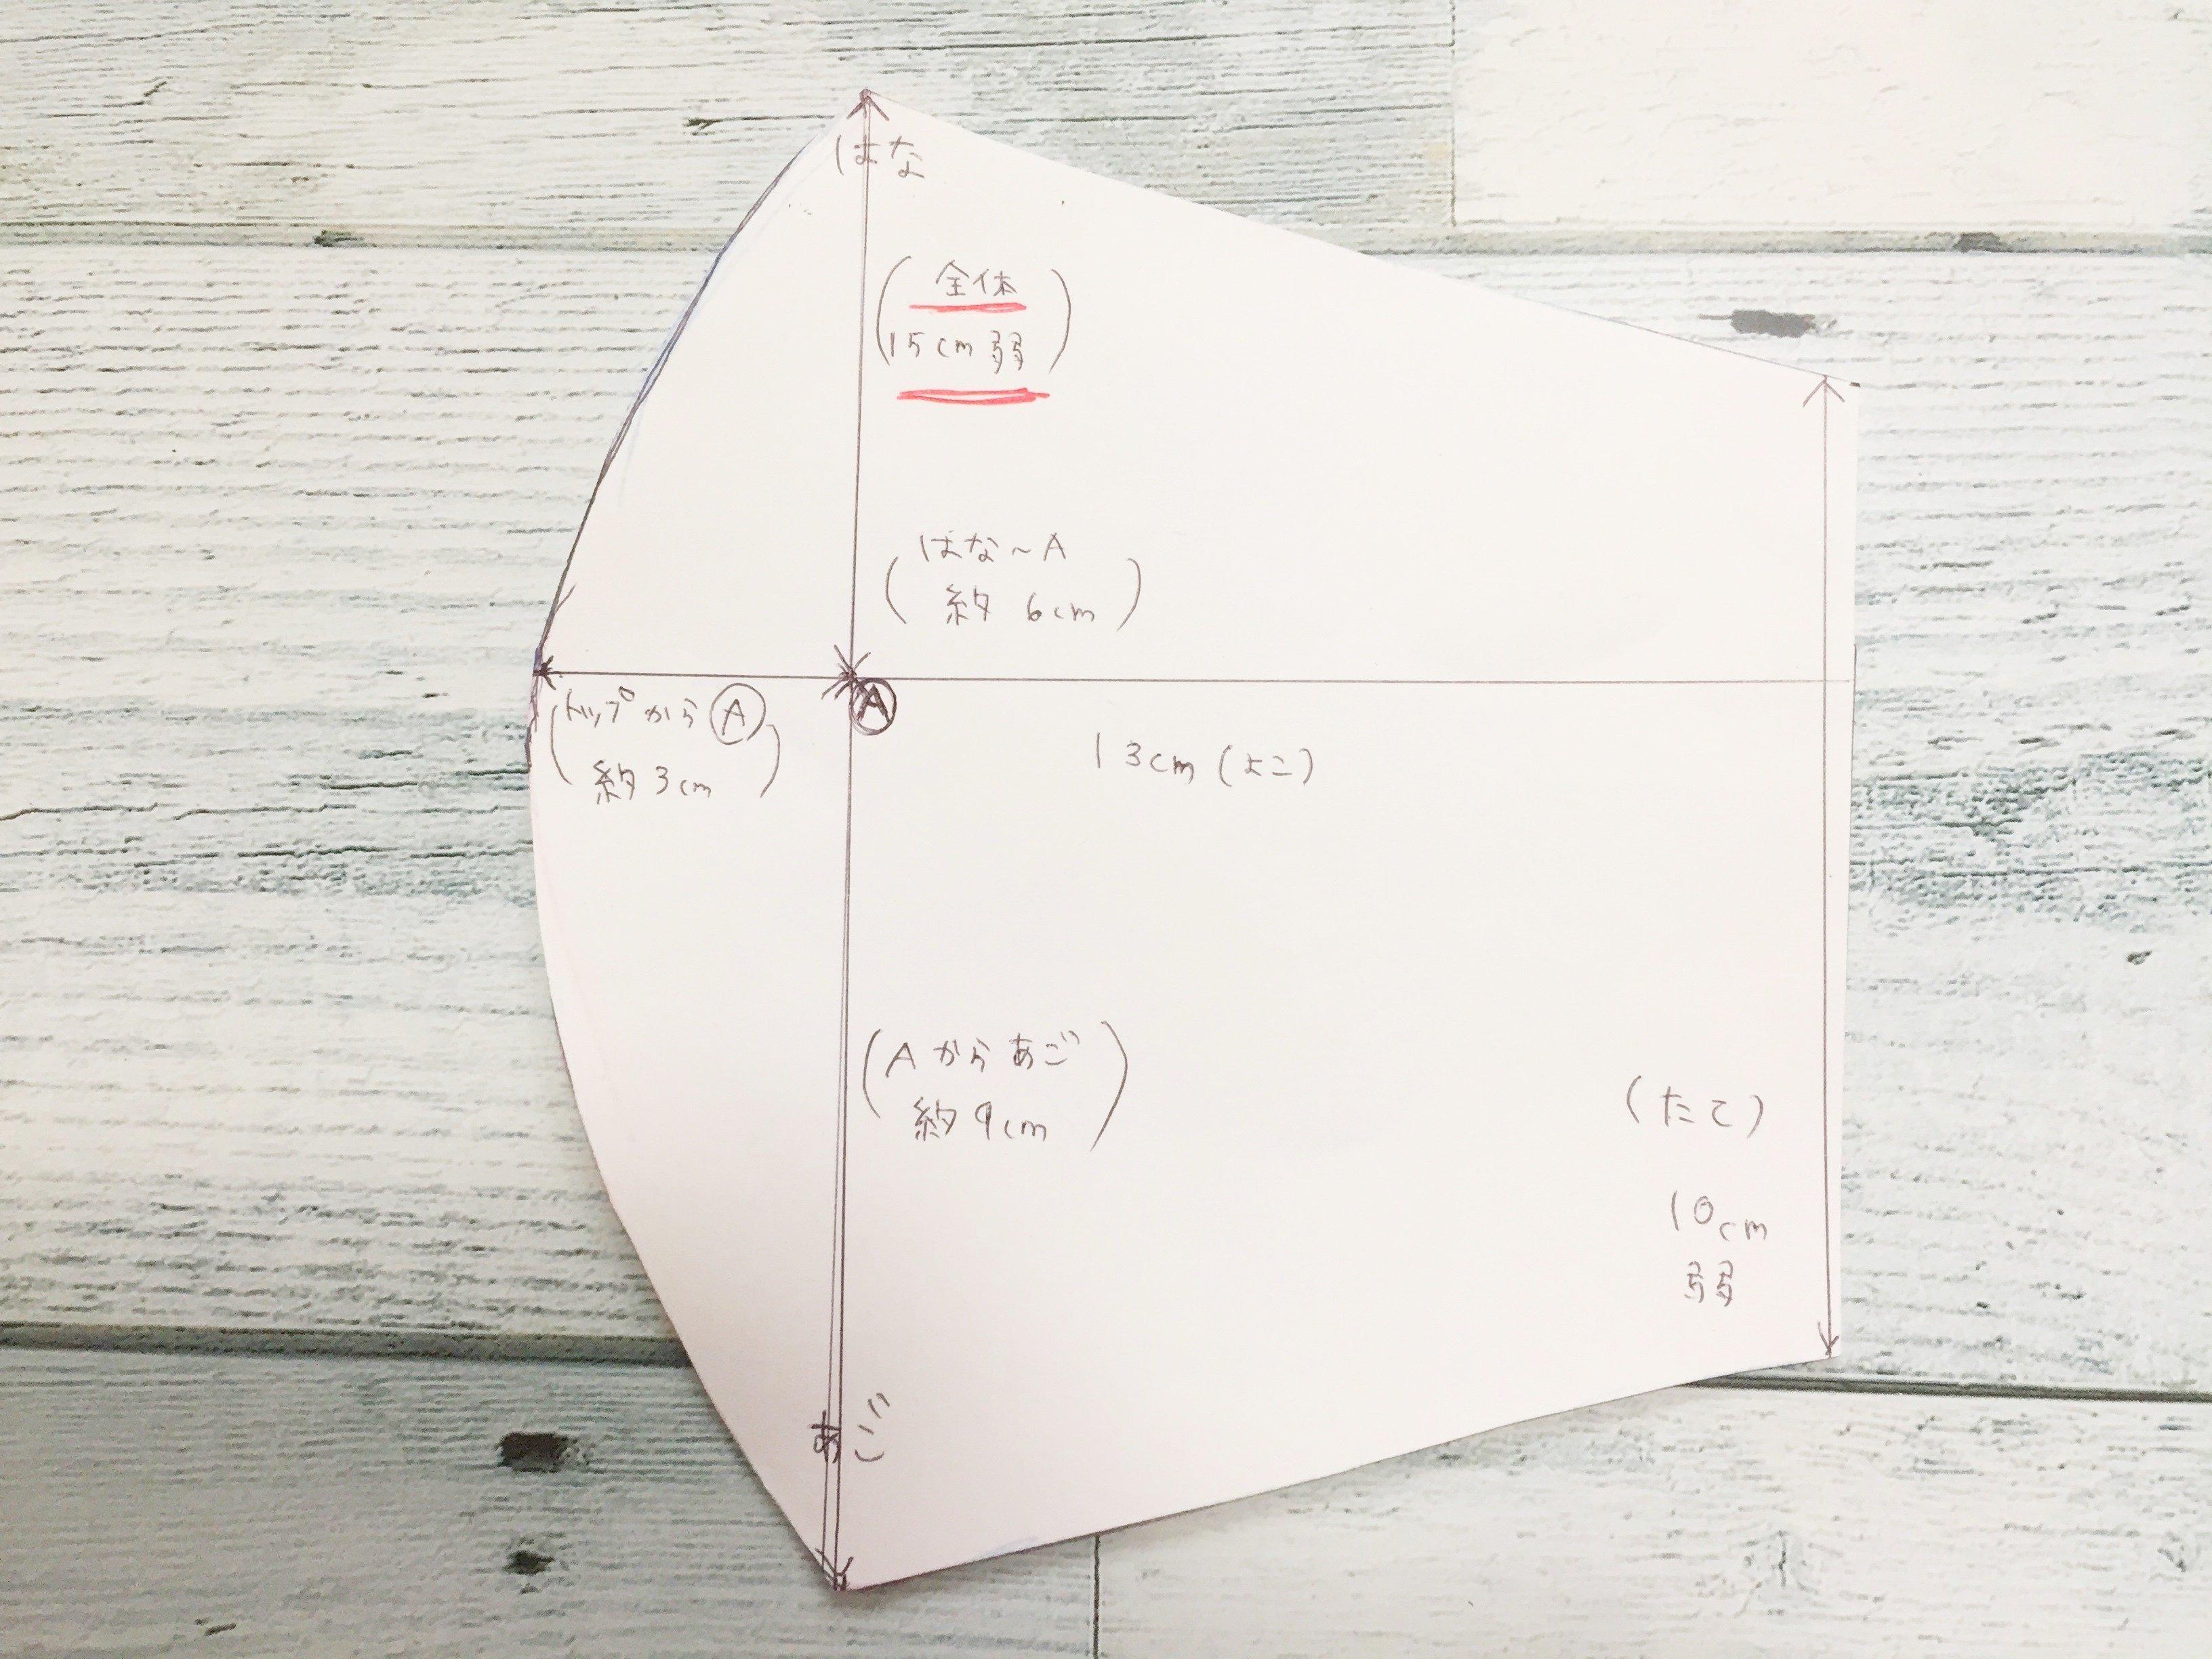 はな
(全体
15cm弱)
(はな~A
約 6cm)
(トップからⒶ
約3cm)
Ⓐ
13cm(よこ)
(Aからあご
約9cm)
(たて)
10cm
弱
あご